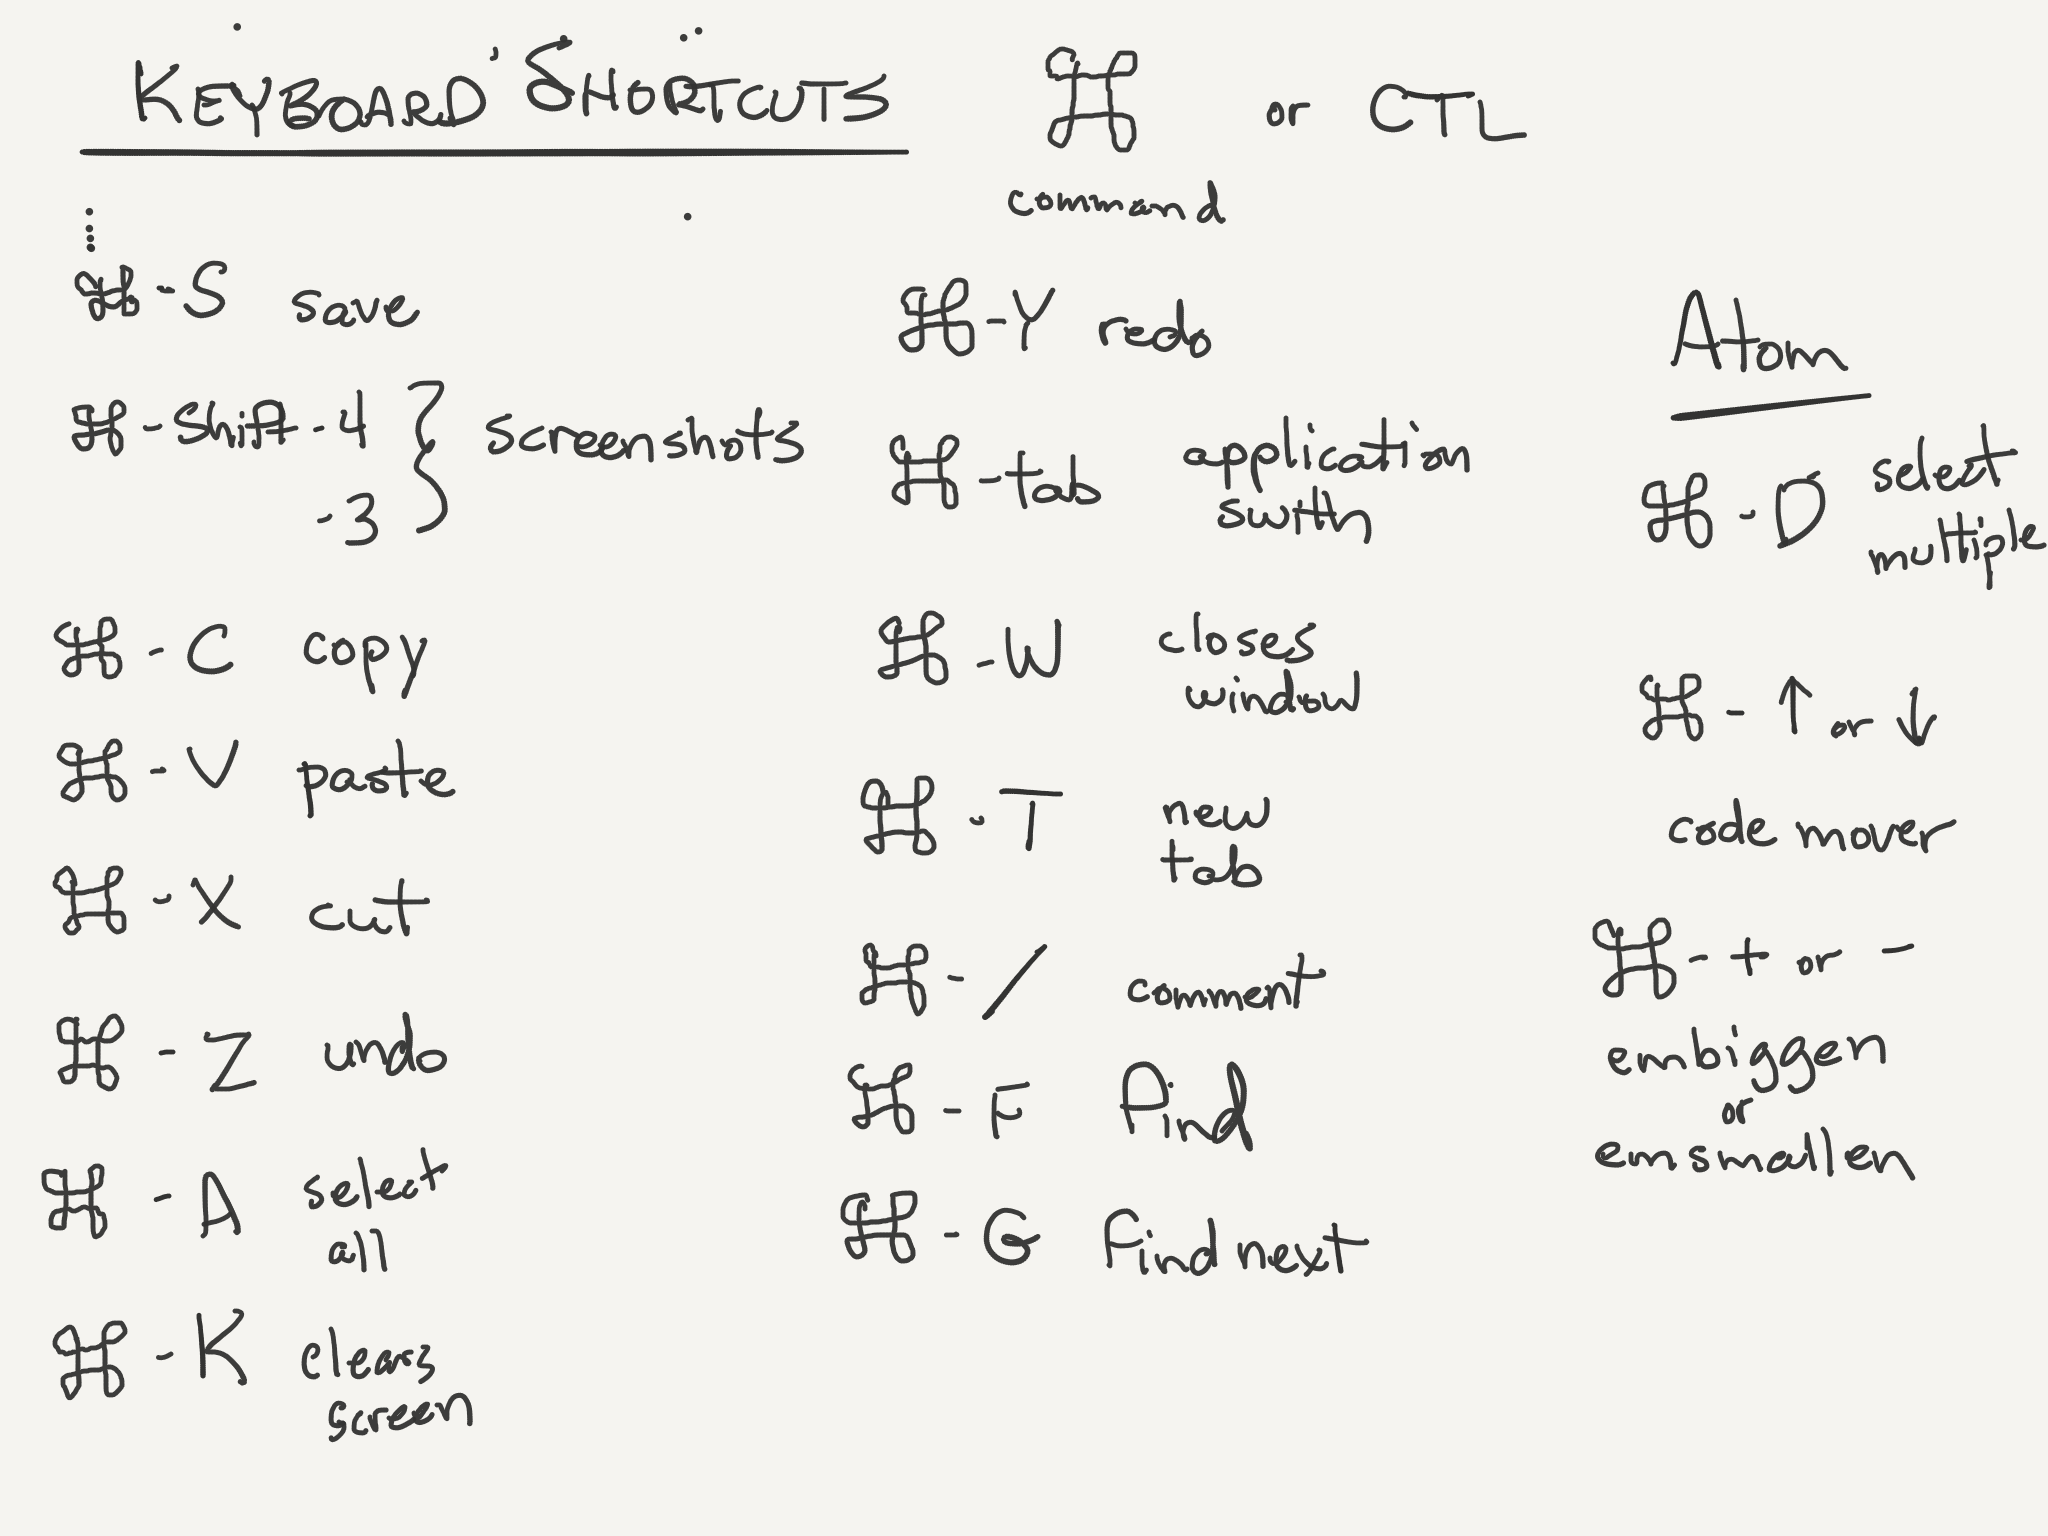 KEYBOARD SHORTCUTS
⌘ or CTL
command
⌘-S save
⌘-Shift-4
-3
screenshots
⌘-C copy
⌘-V paste
⌘-X cut
⌘-Z undo
⌘-A select
all
⌘-K clears
screen
⌘-Y redo
⌘-tab application
swith
⌘-W closes
window
⌘-T new
tab
⌘-/ comment
⌘-F Find
⌘-G Find next
Atom
⌘-D select
multiple
⌘-↑ or ↓
code mover
⌘-+ or -
embiggen
or
emsmallen